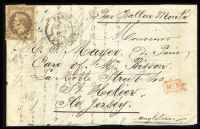 Par Ballon Monté
Monsieur
E. J. Mayer de Paris
Care of Mr. Bisson
La Motte Street
St. Helier
Jersey
angleterre